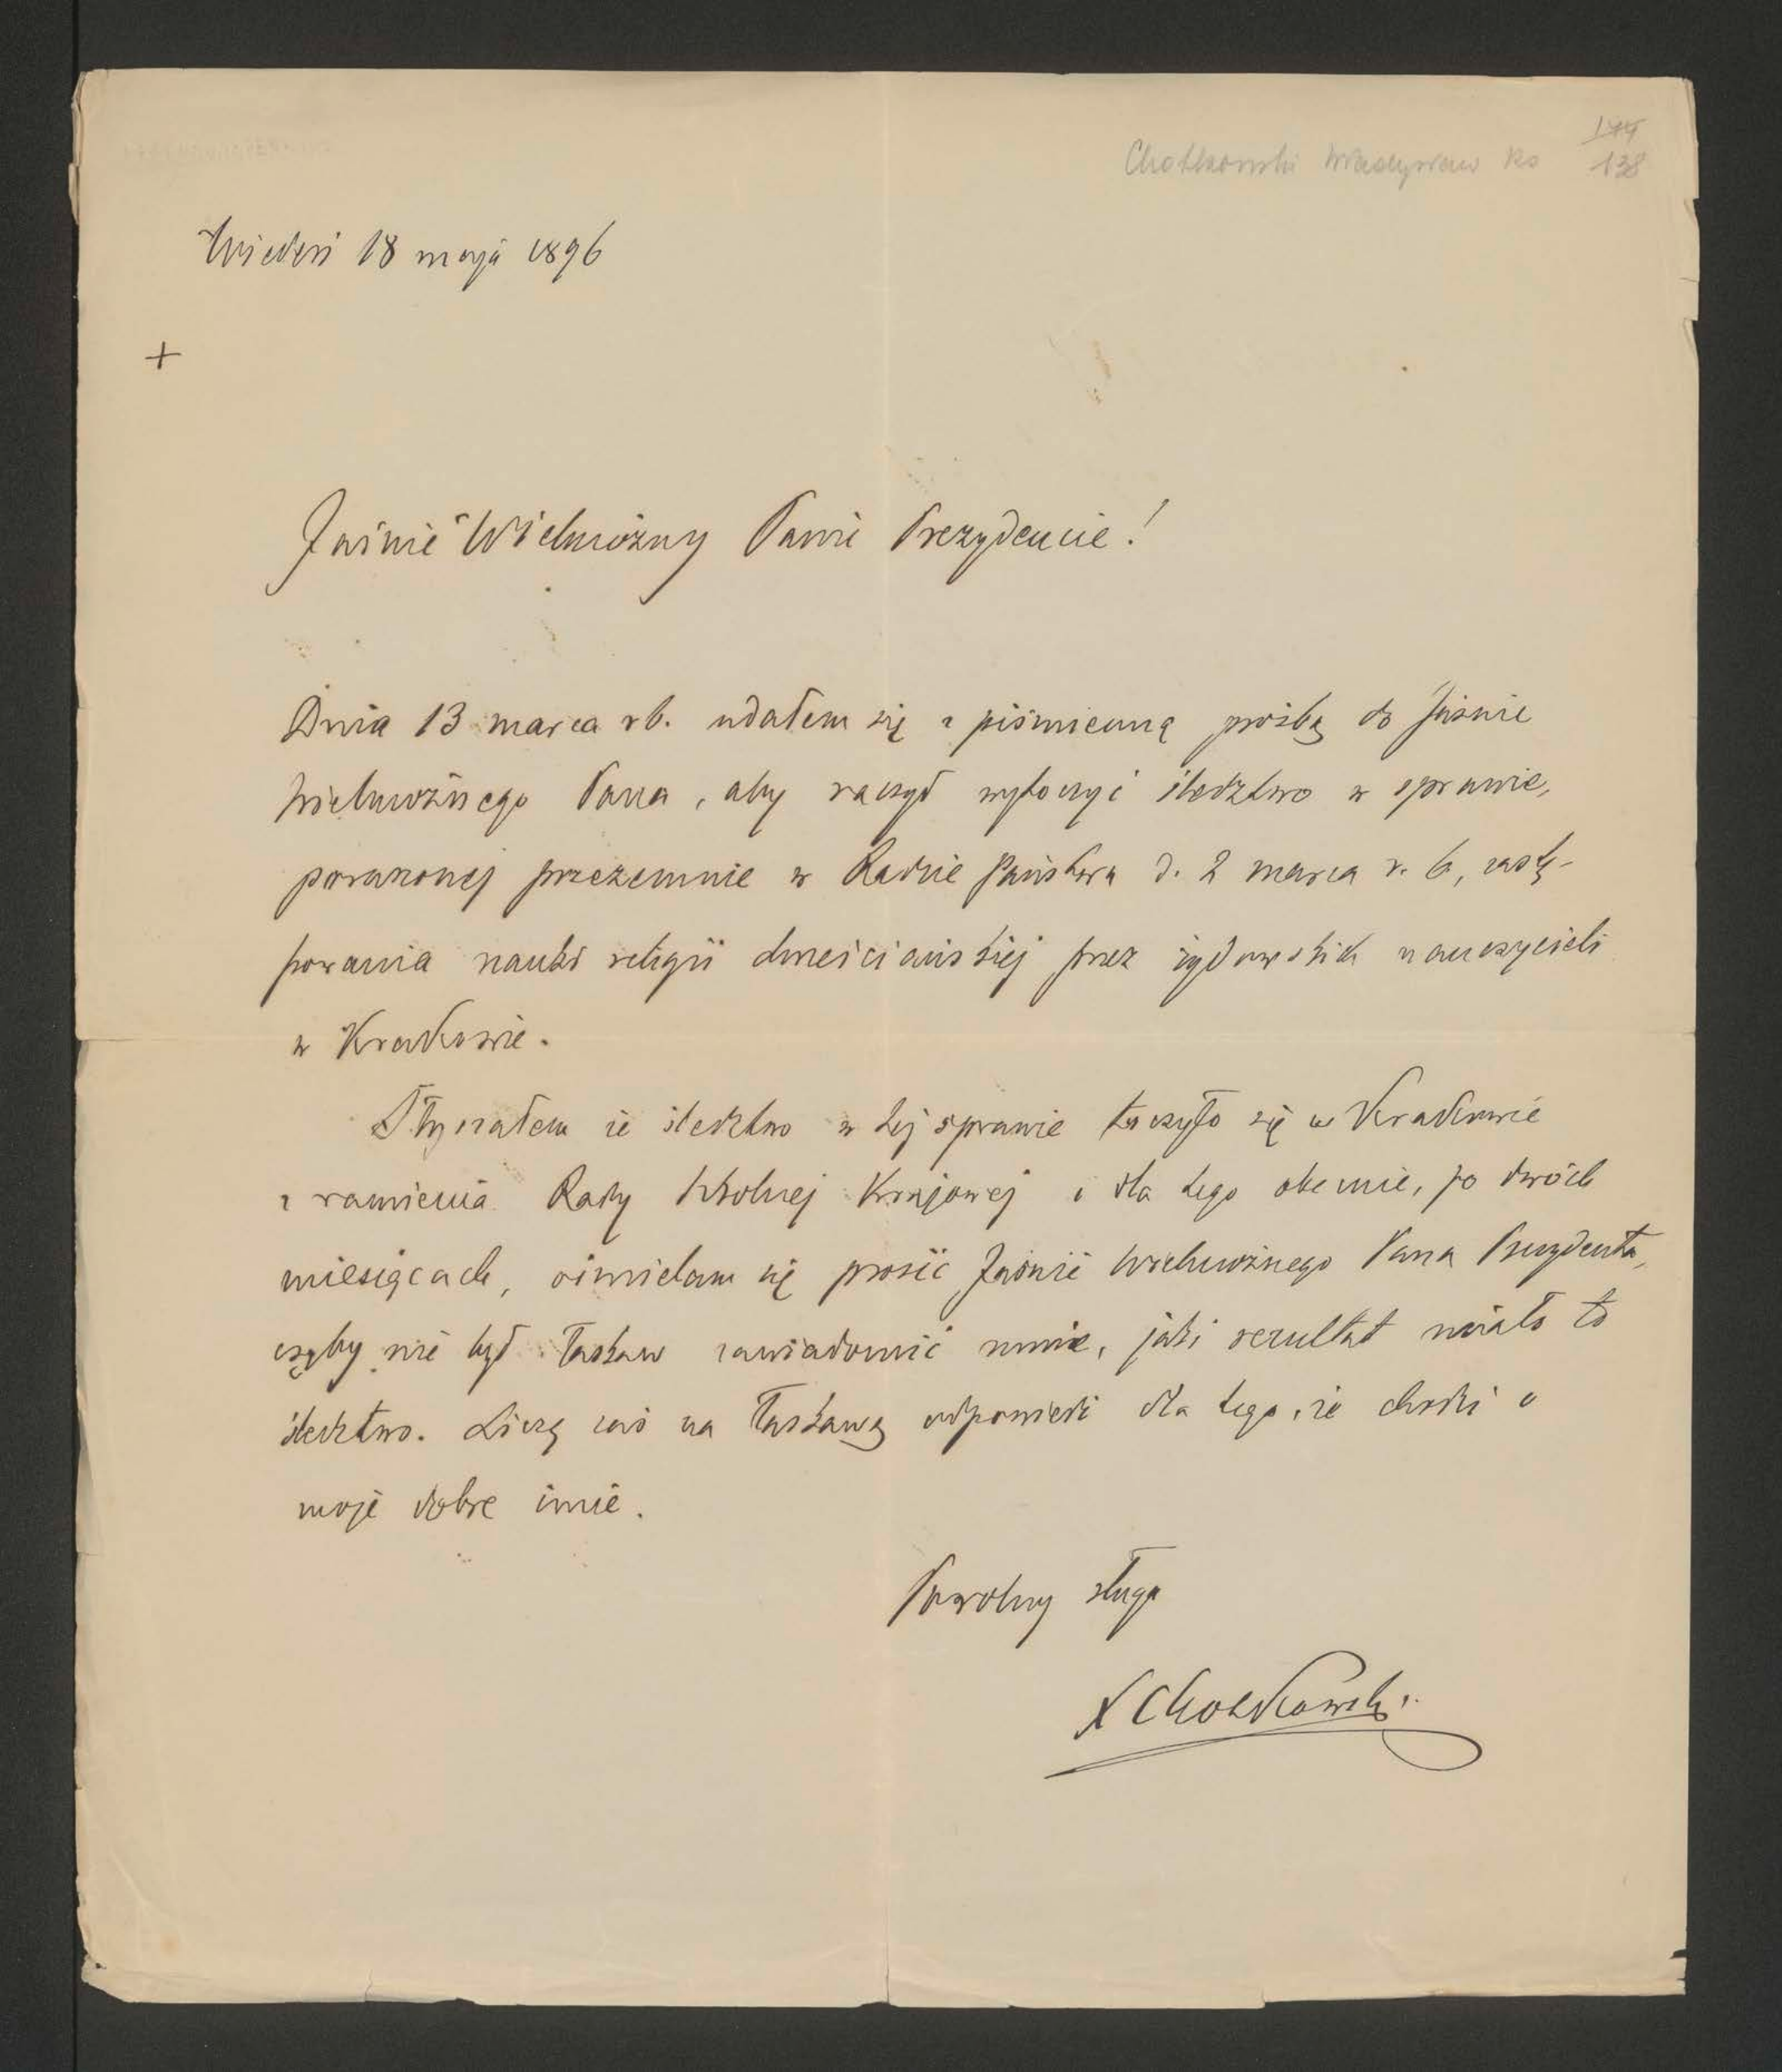 Chotkowski Władysław Ks
174
138
Wiedeń 18 maja 1896
+
Jaśnie Wielmożny Panie Prezydencie!
Dnia 13 marca rb. udałem się z piśmienną prośbą do Jaśnie
Wielmożnego Pana, aby raczył wytoczyć śledztwo w sprawie,
poruszonej przezemnie w Radzie Państwa d. 2 marca r. b, zastę-
powania nauki religii chrześciańskiej przez żydowskich nauczycieli
w Krakowie.
Słyszałem że śledztwo w tej sprawie toczyło się w Krakowie
z ramienia Rady Szkolnej Krajowej i dla tego obecnie, po dwóch
miesiącach, ośmielam się prosić Jaśnie Wielmożnego Pana Prezydenta,
czyby nie był łaskaw zawiadomić mnie, jaki rezultat miało to
śledztwo. Liczę zaś na łaskawą odpowiedź dla tego, że chodzi o
moje dobre imie.
Powolny sługa
X Chotkowski